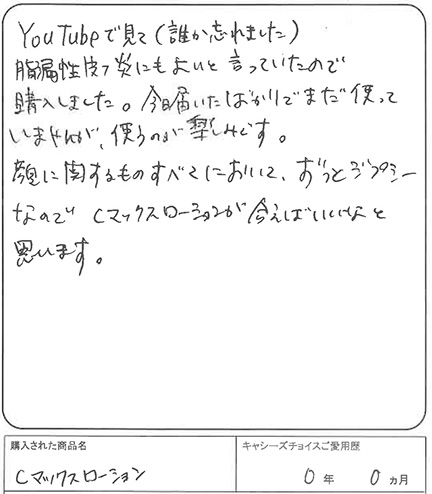 YouTubeで見て(誰か忘れました)
脂漏性皮フ炎にもよいと言っていたので
購入しました。今日届いたばかりでまだ使って
いませんが、使うのが楽しみです。
顔に関するものすべてにおいて、ずっとジプシー
なので Cマックスローションが合えばいいなと
思います。
購入された商品名
Cマックスローション
キャシーズチョイスご愛用歴
0年 0ヵ月